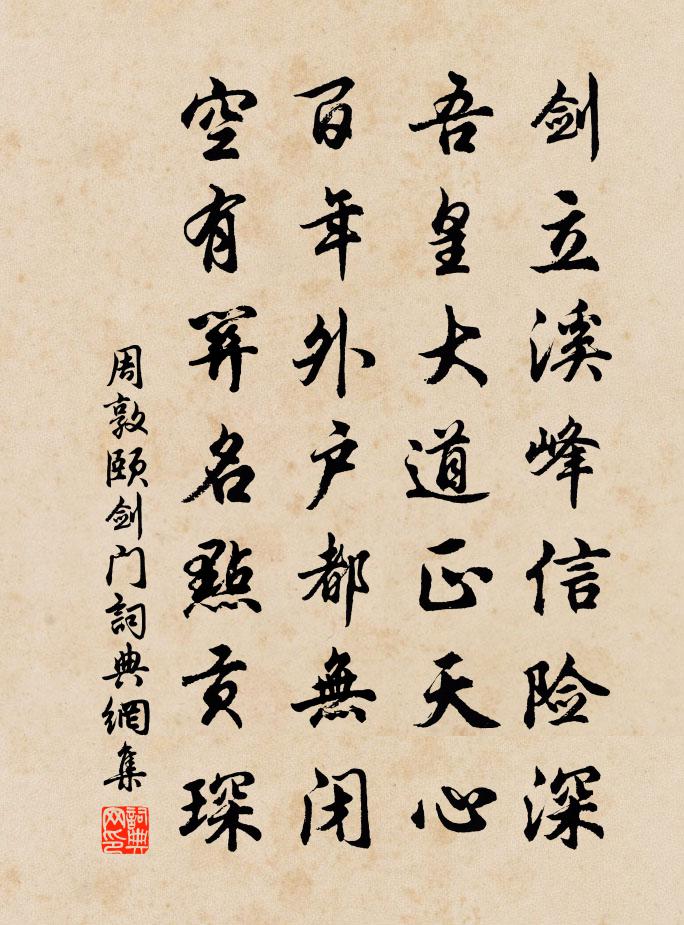 剑立溪峰信险深
吾皇大道正天心
百年外户都無闭
空有關名點贡琛
周敦颐剑门詞典網集
詞典網印